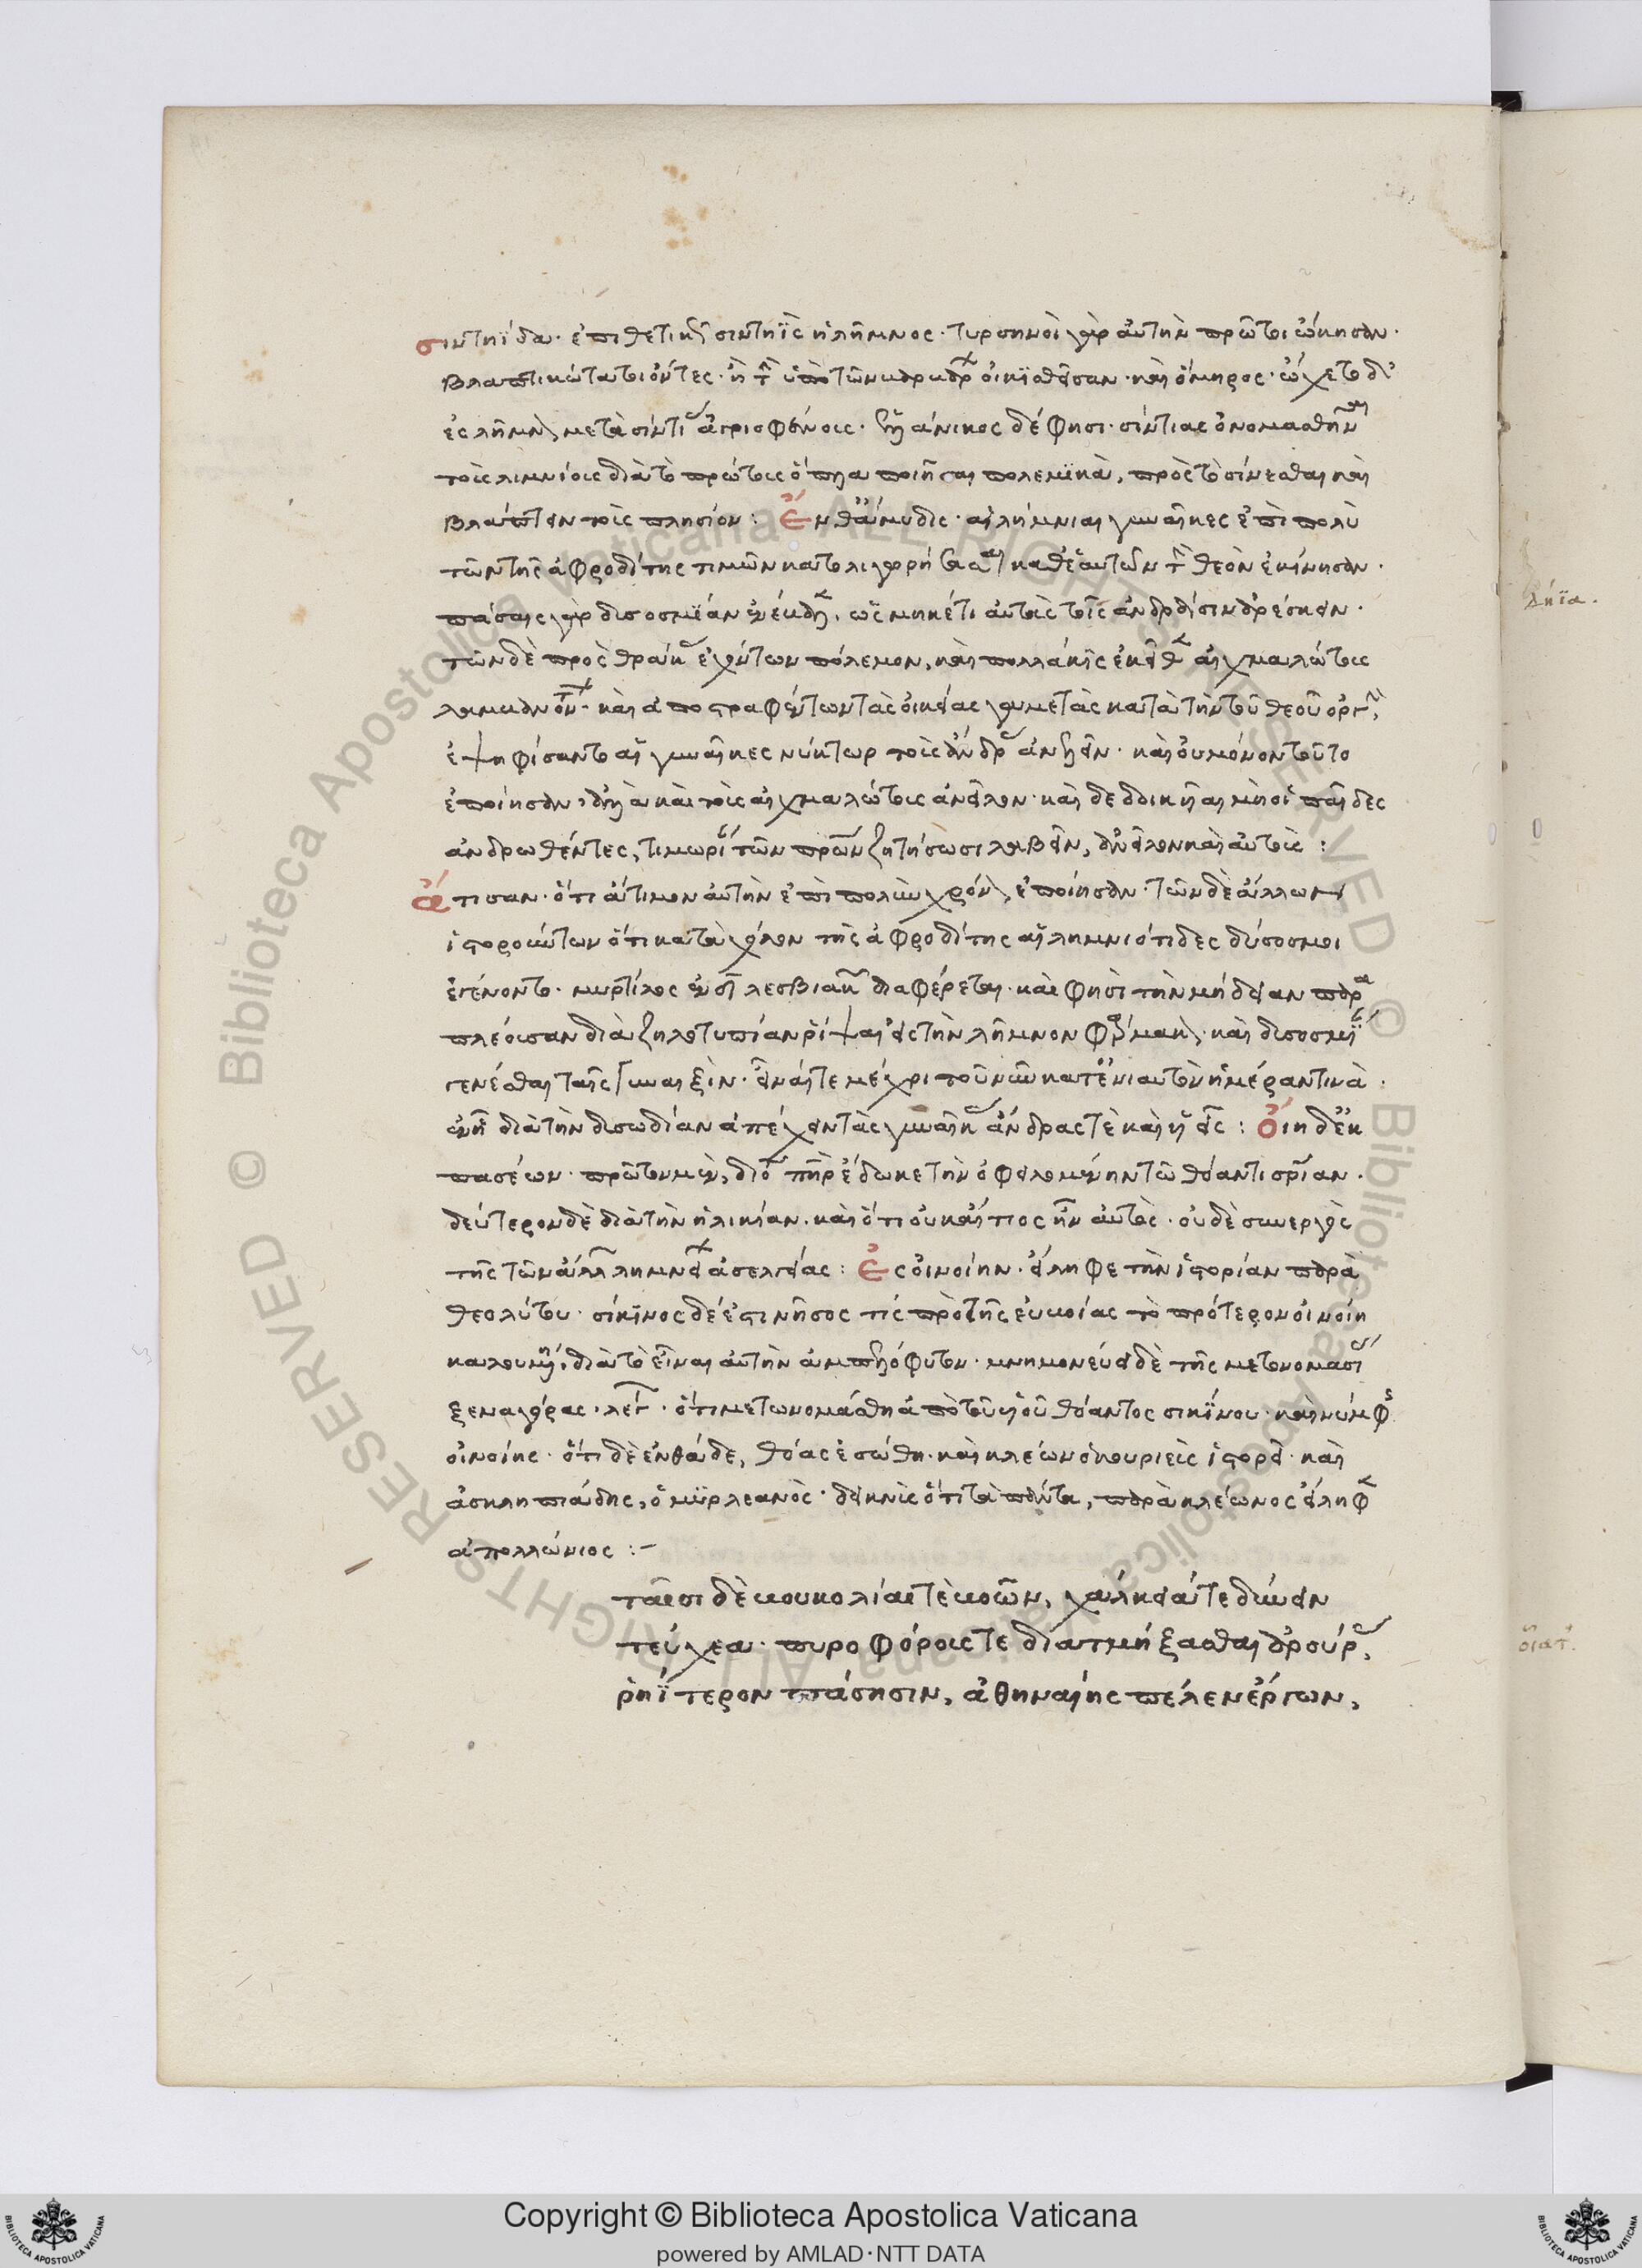 σιντηΐδα· ἐπιθετικῶς σιντηῒς ἡ λῆμνος· τυρσηνοὶ γὰρ αὐτὴν πρῶτοι ὤκησαν·
βλαπτικώτατοι ὄντες· οἰκισθεῖσαν· καὶ ὅμηρος· ὤχετο δι'
ἐς λῆμνον μετὰ σίντιας ἀγριοφώνους· ἑλλάνικος δέ φησι· σίντιας ὀνομασθῆναι
τοὺς λιμνίους διὰ τὸ πρώτους ὅπλα ποιῆσαι πολεμϊκὰ, πρὸς τὸ σίνεσθαι καὶ
βλάπτειν τοὺς πλησίον: Ἐνθ' ἄμυδις· αἱ λήμνιαι γυναῖκες ἐπὶ πολὺ
τῶν τῆς ἀφροδίτης τιμῶν κατολιγωρήσασαι καθ' ἑαυτῶν τὴν θεὸν ἐκίνησαν·
πάσαις γὰρ δυσοσμΐαν ἐνέβαλεν, ὡς μηκέτι αὐτὰς τοῖς ἀνδράσιν ἀρέσκειν·
τῶν δὲ πρὸς θράκας ἐχόντων πόλεμον, καὶ πολλάκις ἐκεῖθεν αἰχμαλώτους
λαμβανόντων· καὶ ἀποστραφέντων τὰς οἰκείας γαμετὰς κατὰ τὴν τοῦ θεοῦ ὀργὴν,
ἐψηφίσαντο αἱ γυναῖκες νύκτωρ τοὺς ἄνδρας ἀνελεῖν· καὶ οὐ μόνον τοῦτο
ἐποίησαν, ἀλλὰ καὶ τοὺς αἰχμαλώτους ἀνεῖλον· καὶ δεδοικυῖαι μὴ οἱ παῖδες
ἀνδρωθέντες, τιμωρίαν τῶν πατέρων ζητήσωσι λαβεῖν, ἀνεῖλον καὶ αὐτούς:
Ἄτισαν· ὅτι ἄτιμον αὐτὴν ἐπὶ πολὺν χρόνον ἐποίησαν· τῶν δὲ ἄλλων
ἱστορούντων ὅτι κατὰ χόλον τῆς ἀφροδίτης αἱ λημνιότιδες δύσοσμοι
ἐγένοντο· μυρτίλος ἐν τοῖς λεσβιακοῖς διαφέρεται· καὶ φησὶ τὴν μήδειαν παρα
πλέουσαν διὰ ζηλοτυπίαν ῥίψαι εἰς τὴν λῆμνον φάρμακον· καὶ δυσοσμίαν
γενέσθαι ταῖς γυναιξὶν· εἶναί τε μέχρι τοῦ νῦν κατ' ἐνιαυτὸν ἡμέραν τινὰ·
ἐν ᾗ διὰ τὴν δυσωδίαν ἀπέχειν τὰς γυναῖκας ἄνδρας τὲ καὶ υἱεῖς: Οἴη δ' ἐκ
πασέων· πρῶτον μὲν, διότι πατὴρ ἔδωκε τὴν ὀφειλομένην τῷ θόαντι σωτηρίαν·
δεύτερον δὲ διὰ τὴν ἡλικίαν· καὶ ὅτι οὐκ αἴτιος ἦν αὐτὸς· οὐδὲ συνεργὸς
τῆς τῶν ἄλλων λημνίων ἀσελγείας: Ἐς οἰνοίην· εἴληφε τὴν ἱστορίαν παρὰ
θεολύτου· σίκϊνος δέ ἐστι νῆσος τίς πρὸ τῆς εὐβοίας τὸ πρότερον οἰνοίη
καλουμένη, διὰ τὸ εἶναι αὐτὴν ἀμπελόφυτον· μνημονεύει δὲ τῆς μετονομασίας
ξεναγόρας· λέγει· ὅτι μετωνομάσθη ἀπὸ τοῦ υἱοῦ θόαντος σικΐνου· καὶ νύμφης
οἰνοίης· ὅτι δὲ ἐνθάδε, θόας ἐσώθη· καὶ κλέων ὁ κουριεὺς ἱστορεῖ· καὶ
ἀσκληπιάδης, ὁ μΰρλεανὸς· δεικνὺς ὅτι τὰ πάντα, παρὰ κλέωνος εἴληφεν
ἀπολλώνιος :-
ταῖσι δὲ βουκολίαι τὲ βοῶν, χάλκειά τε δύνειν
τεύχεα· πυροφόρους τε διατμήξασθαι ἀρούρας,
ῥηΐτερον πάσησιν, ἀθηναίης πέλεν ἔργων,